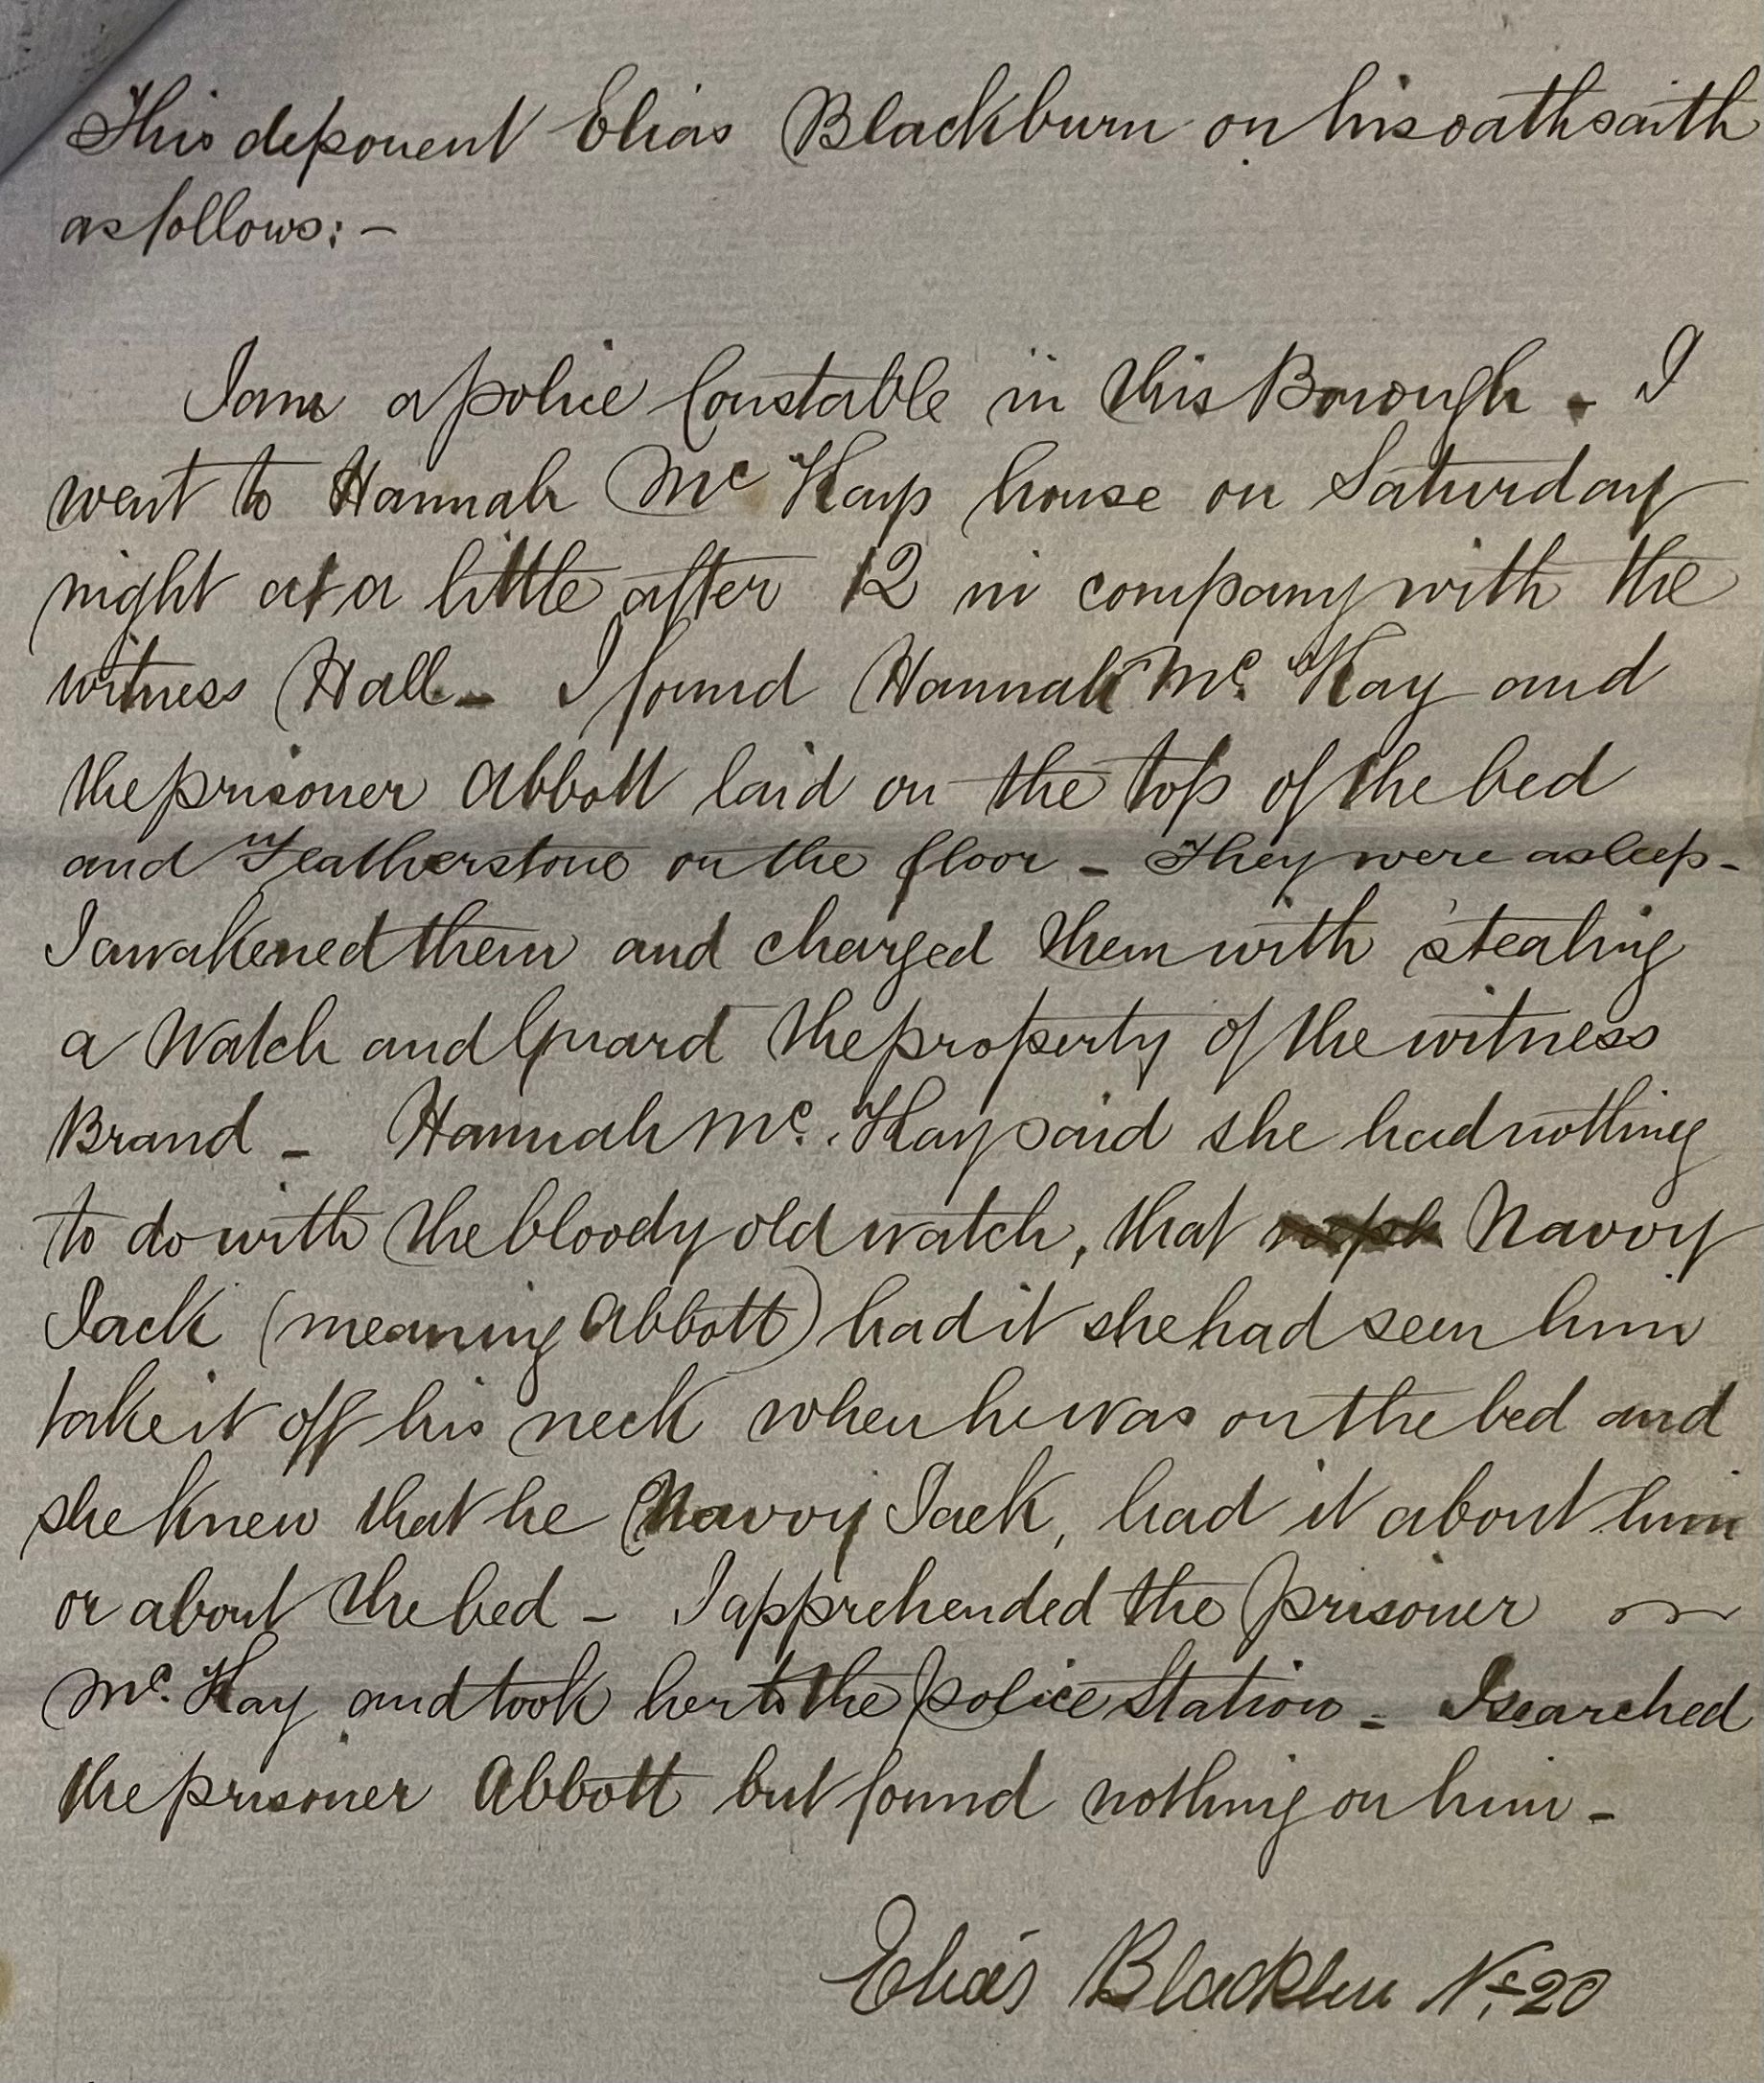 This deponent Elias Blackburn on his oath saith
as follows:-
I am a police Constable in this Borough - I
went to Hannah Mc Kays house on Saturday
night at a little after 12 in company with the
witness Hall - I found Hannah Mc. Kay and
the prisoner Abbott laid on the top of the bed
and Featherstone on the floor - They were asleep -
I awakened them and charged them with stealing
a Watch and Guard the property of the witness
Brand - Hannah Mc. Kay said she had nothing
to do with the bloody old watch, that Navvy
Jack (meaning Abbott) had it she had seen him
take it off his neck when he was on the bed and
she knew that he (Navvy Jack, had it about him
or about the bed - I apprehended the prisoner
Mc. Kay and took her to the police Station - I searched
the prisoner Abbott but found nothing on him -
Elias No. 20